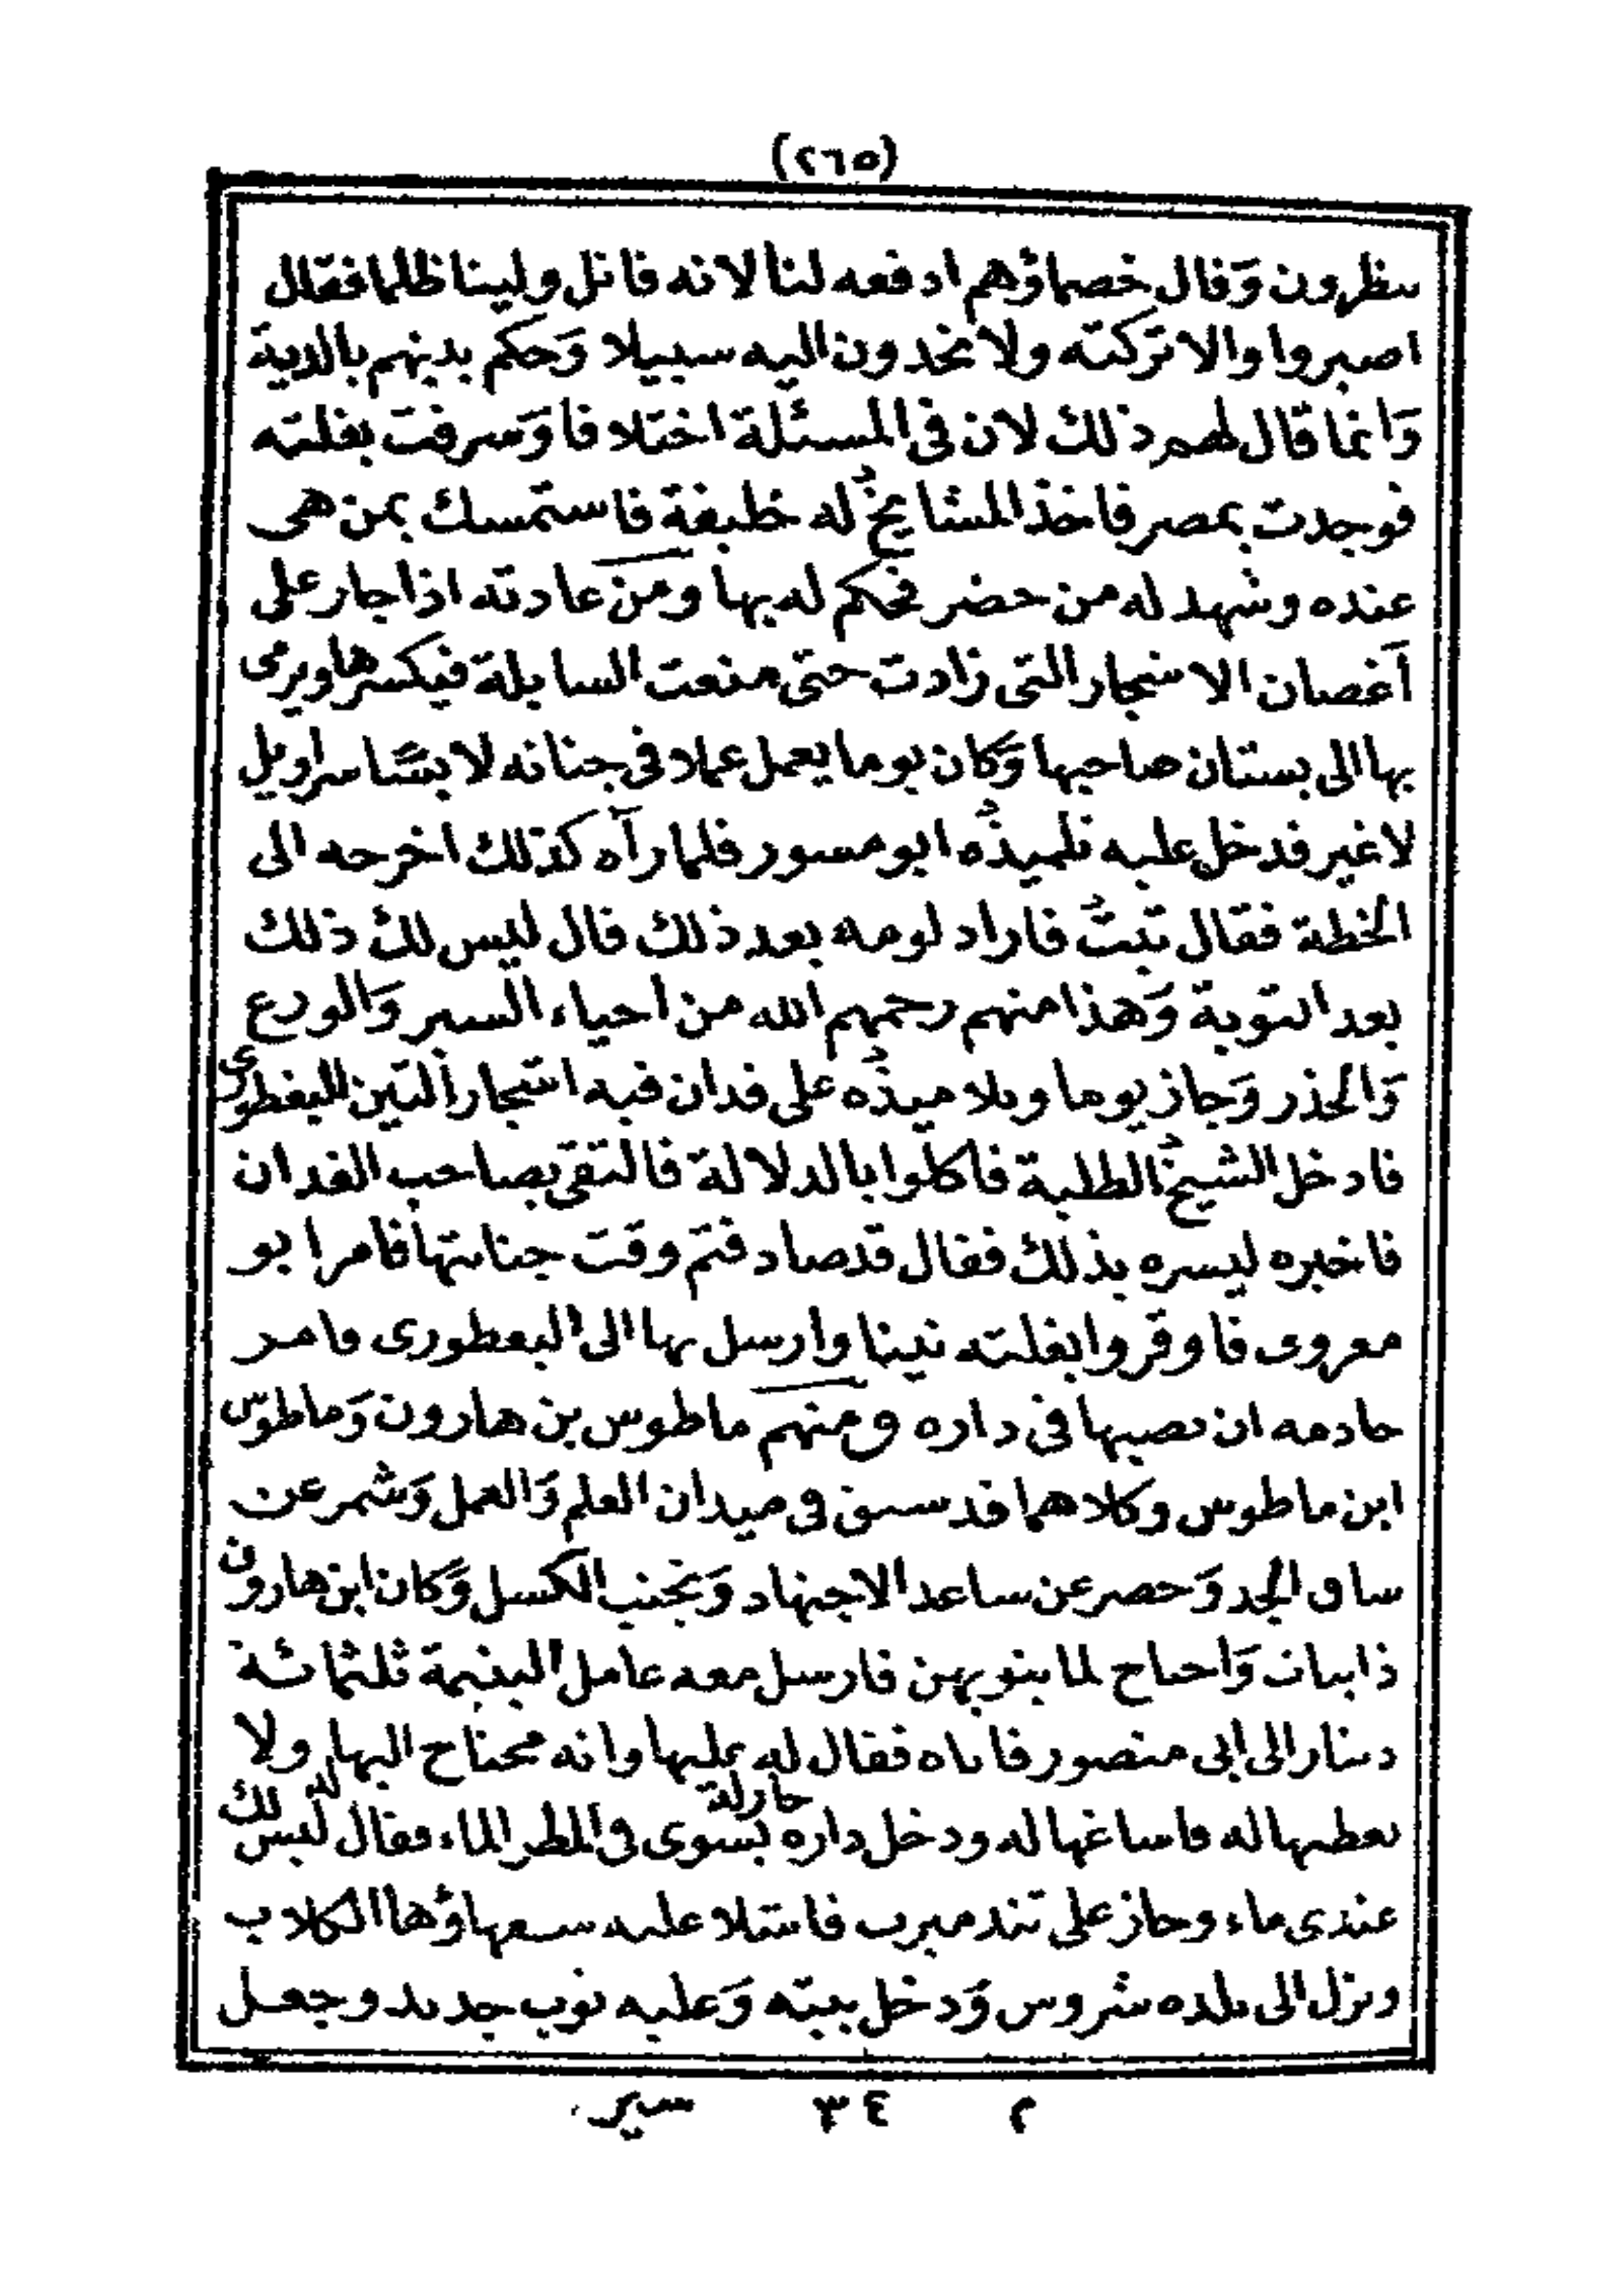 (٢٦٥)
ينظرون وَقال خصماؤهم ادفعه لنا لانه قاتل ولينا ظلما فقال
اصبروا والا تركته ولا تجدون اليه سبيلا وَحكم بدينهم بالدية
وَانما قال لهم ذلك لان فى المسئلة اختلافا وَسرقت بغلته
فوجدت بمصر فاخذ المشايخ له خليفة فاستمسك بمن هى
عنده وشهد له من حضر فحكم له بها ومن عادته اذا جاز على
اَغصان الاشجار التى زادت حتى منعت السابلة فيكسرها ويرمى
بها الى بستان صاحبها وَكان يوما يعمل عملا فى جنانه لابسًا سراويل
لا غير فدخل عليه تلميذه ابو مسور فلما رآه كذلك اخرجه الى
الخطة فقال تبتُ فاراد لومه بعد ذلك قال ليس لك ذلك
بعد التوبة وَهذا منهم رحمهم الله من احياء السير وَالورع
وَالحذر وَجاز يوما وتلاميذه على فدان فيه اشجار التين لليغطورى
فادخل الشيخ الطلبة فاكلوا بالدلالة فالتقى بصاحب الفدان
فاخبره ليسره بذلك فقال قد صادفتم وقت جنايتها فامر ابو
معروف فاوقروا بغلته تينا وارسل بها الى اليغطورى وامر
خادمه ان يصبها فى داره ومنهم ماطوس بن هارون وَماطوس
ابن ماطوس وكلاهما قد سبق فى ميدان العلم وَالعمل وَشمر عن
ساق الجد وَحصر عن ساعد الاجتهاد وَتجنب الكسل وَكان ابن هارون
ذا بنات وَاحتاج لما ينوبهن فارسل معه عامل اليتيمة ثلثمائة
دينار الى ابى منصور فاتاه فقال له عليها وانه محتاج اليها ولا
يعطيها له فاساغها له ودخل داره جارلة يسوى فى المطر الماء فقال له ليس لك
عندى ماء وجاز على تندميرت فاشلا عليه سفهاؤها الكلاب
ونزل الى بلده شروس وَدخل بيته وَعليه ثوب جديد وجعل
م ٣٤ سير